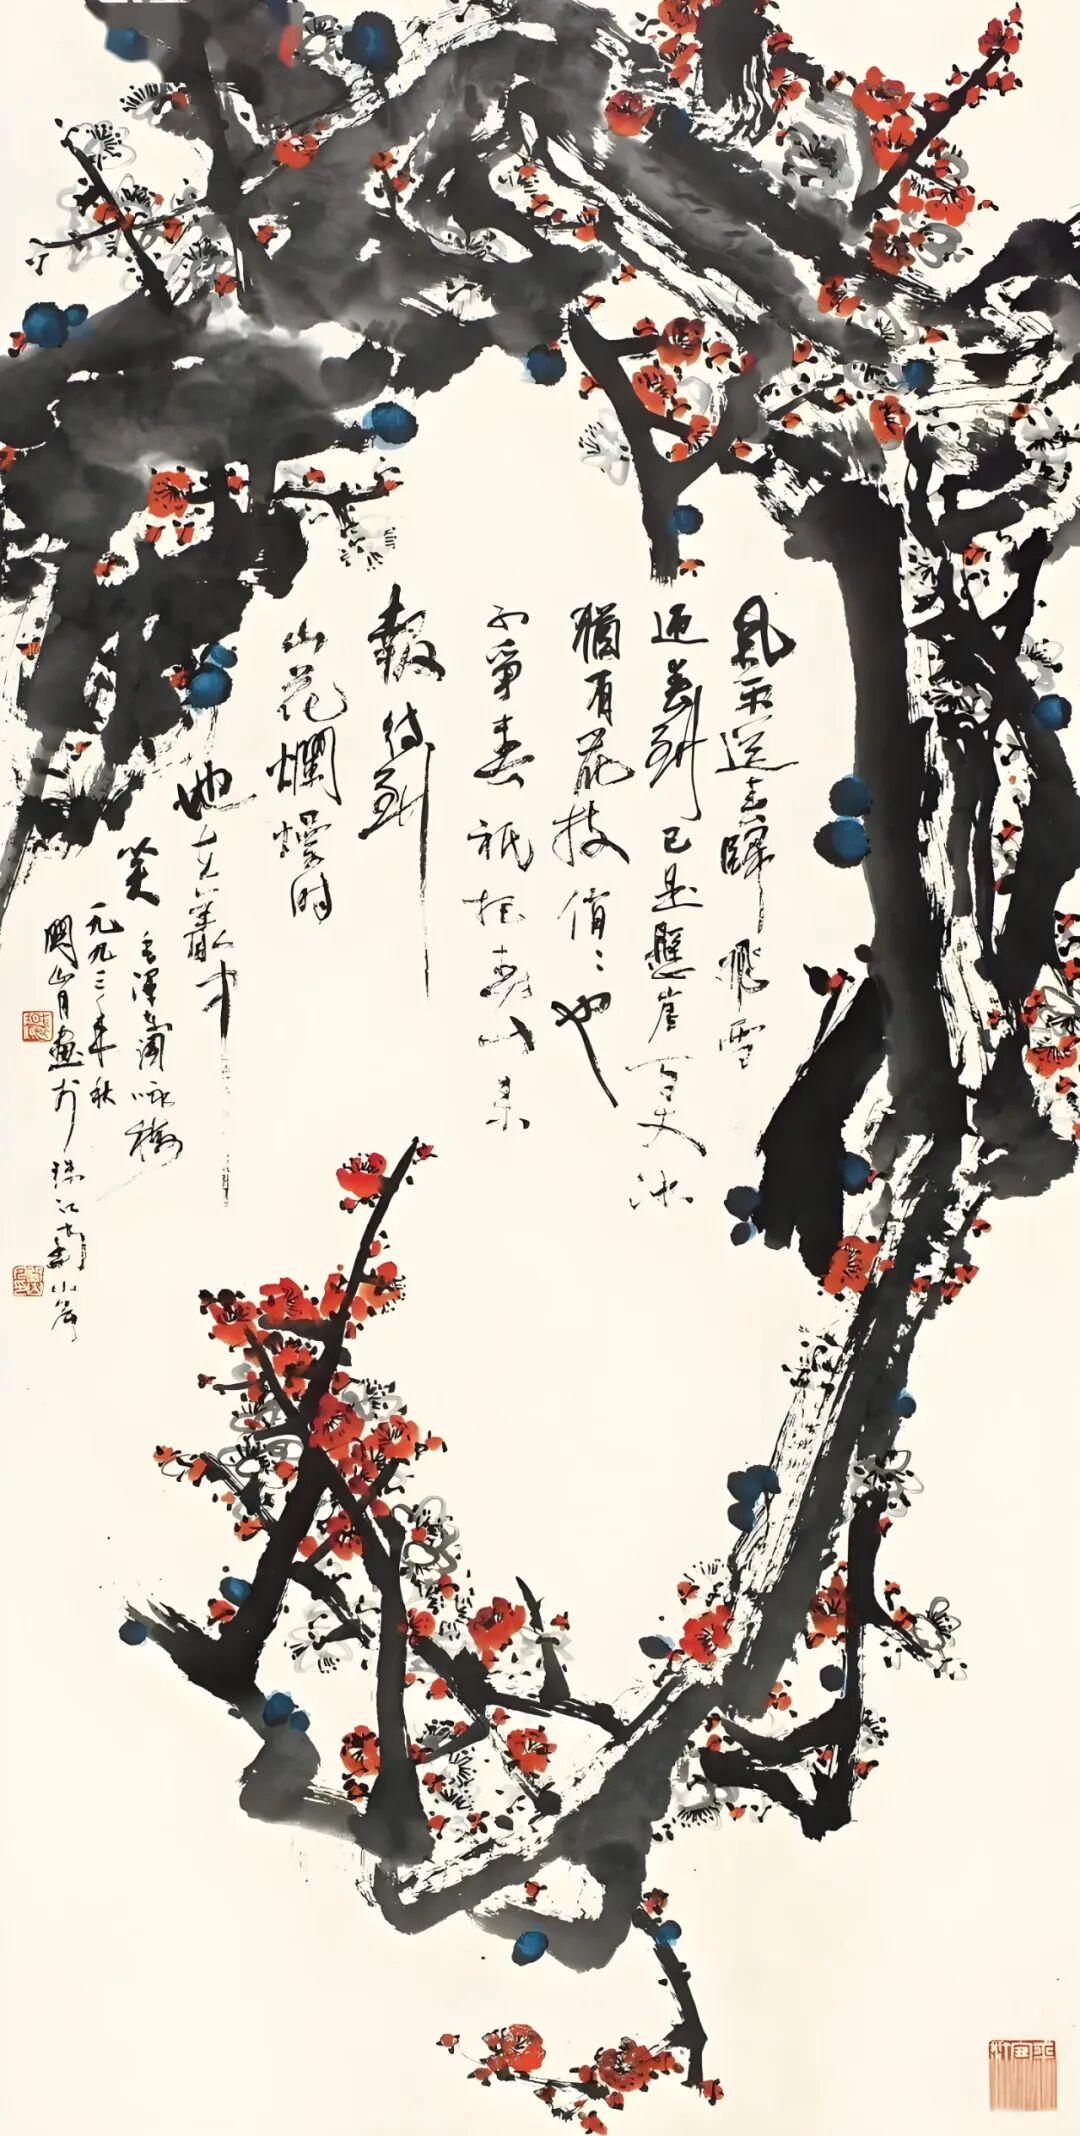 風雨送春歸飛雪
迎春到已是懸崖百丈冰
猶有花枝俏〻也
不爭春祇把春来
報待到
山花爛熳时
她在叢中
笑 毛澤東詞詠梅
一九九三年秋
關山月畫於珠江南